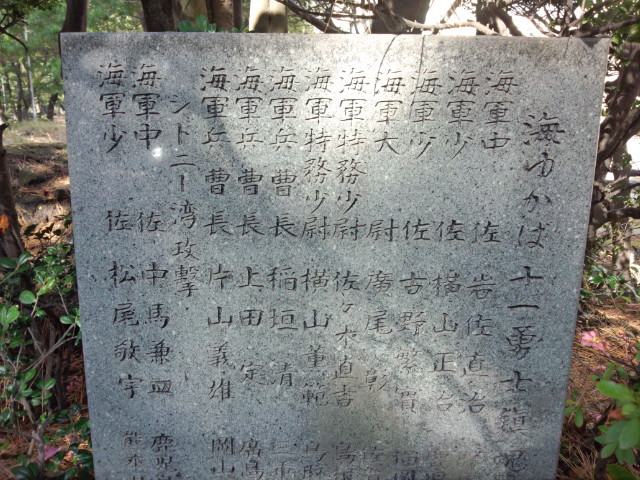 海ゆかば 十一勇士鎮
海軍中佐 岩佐直治
海軍少佐 横山正治
海軍少佐 古野繁實
海軍大尉 廣尾彰
海軍特務少尉 佐々木直吉
海軍特務少尉 横山薫範
海軍兵曹長 稲垣清
海軍兵曹長 上田定
海軍兵曹長 片山義雄 岡山
シドニー湾攻撃
海軍中佐 中馬兼四 鹿児
海軍少佐 松尾敬宇 熊本